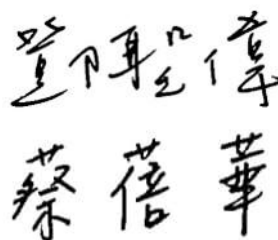 鄧聖偉
蔡蓓華